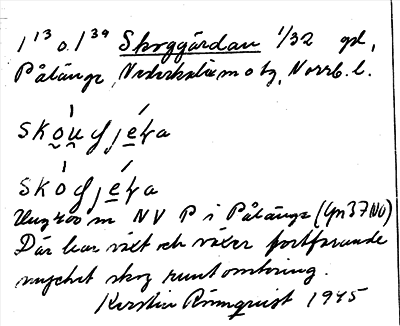 1¹³ o. 1³⁹ Skoggärdan 1/32 gd,
Pålänge, Nederkalix m o tg, Norrb. l.
skoug jeḷa
skog jeḷa
Ung 400 m NV P i Pålänge (Gn 37 NO)
Där har växt och växer fortfarande
mycket skog runtomkring.
Kerstin Rönnquist 1945